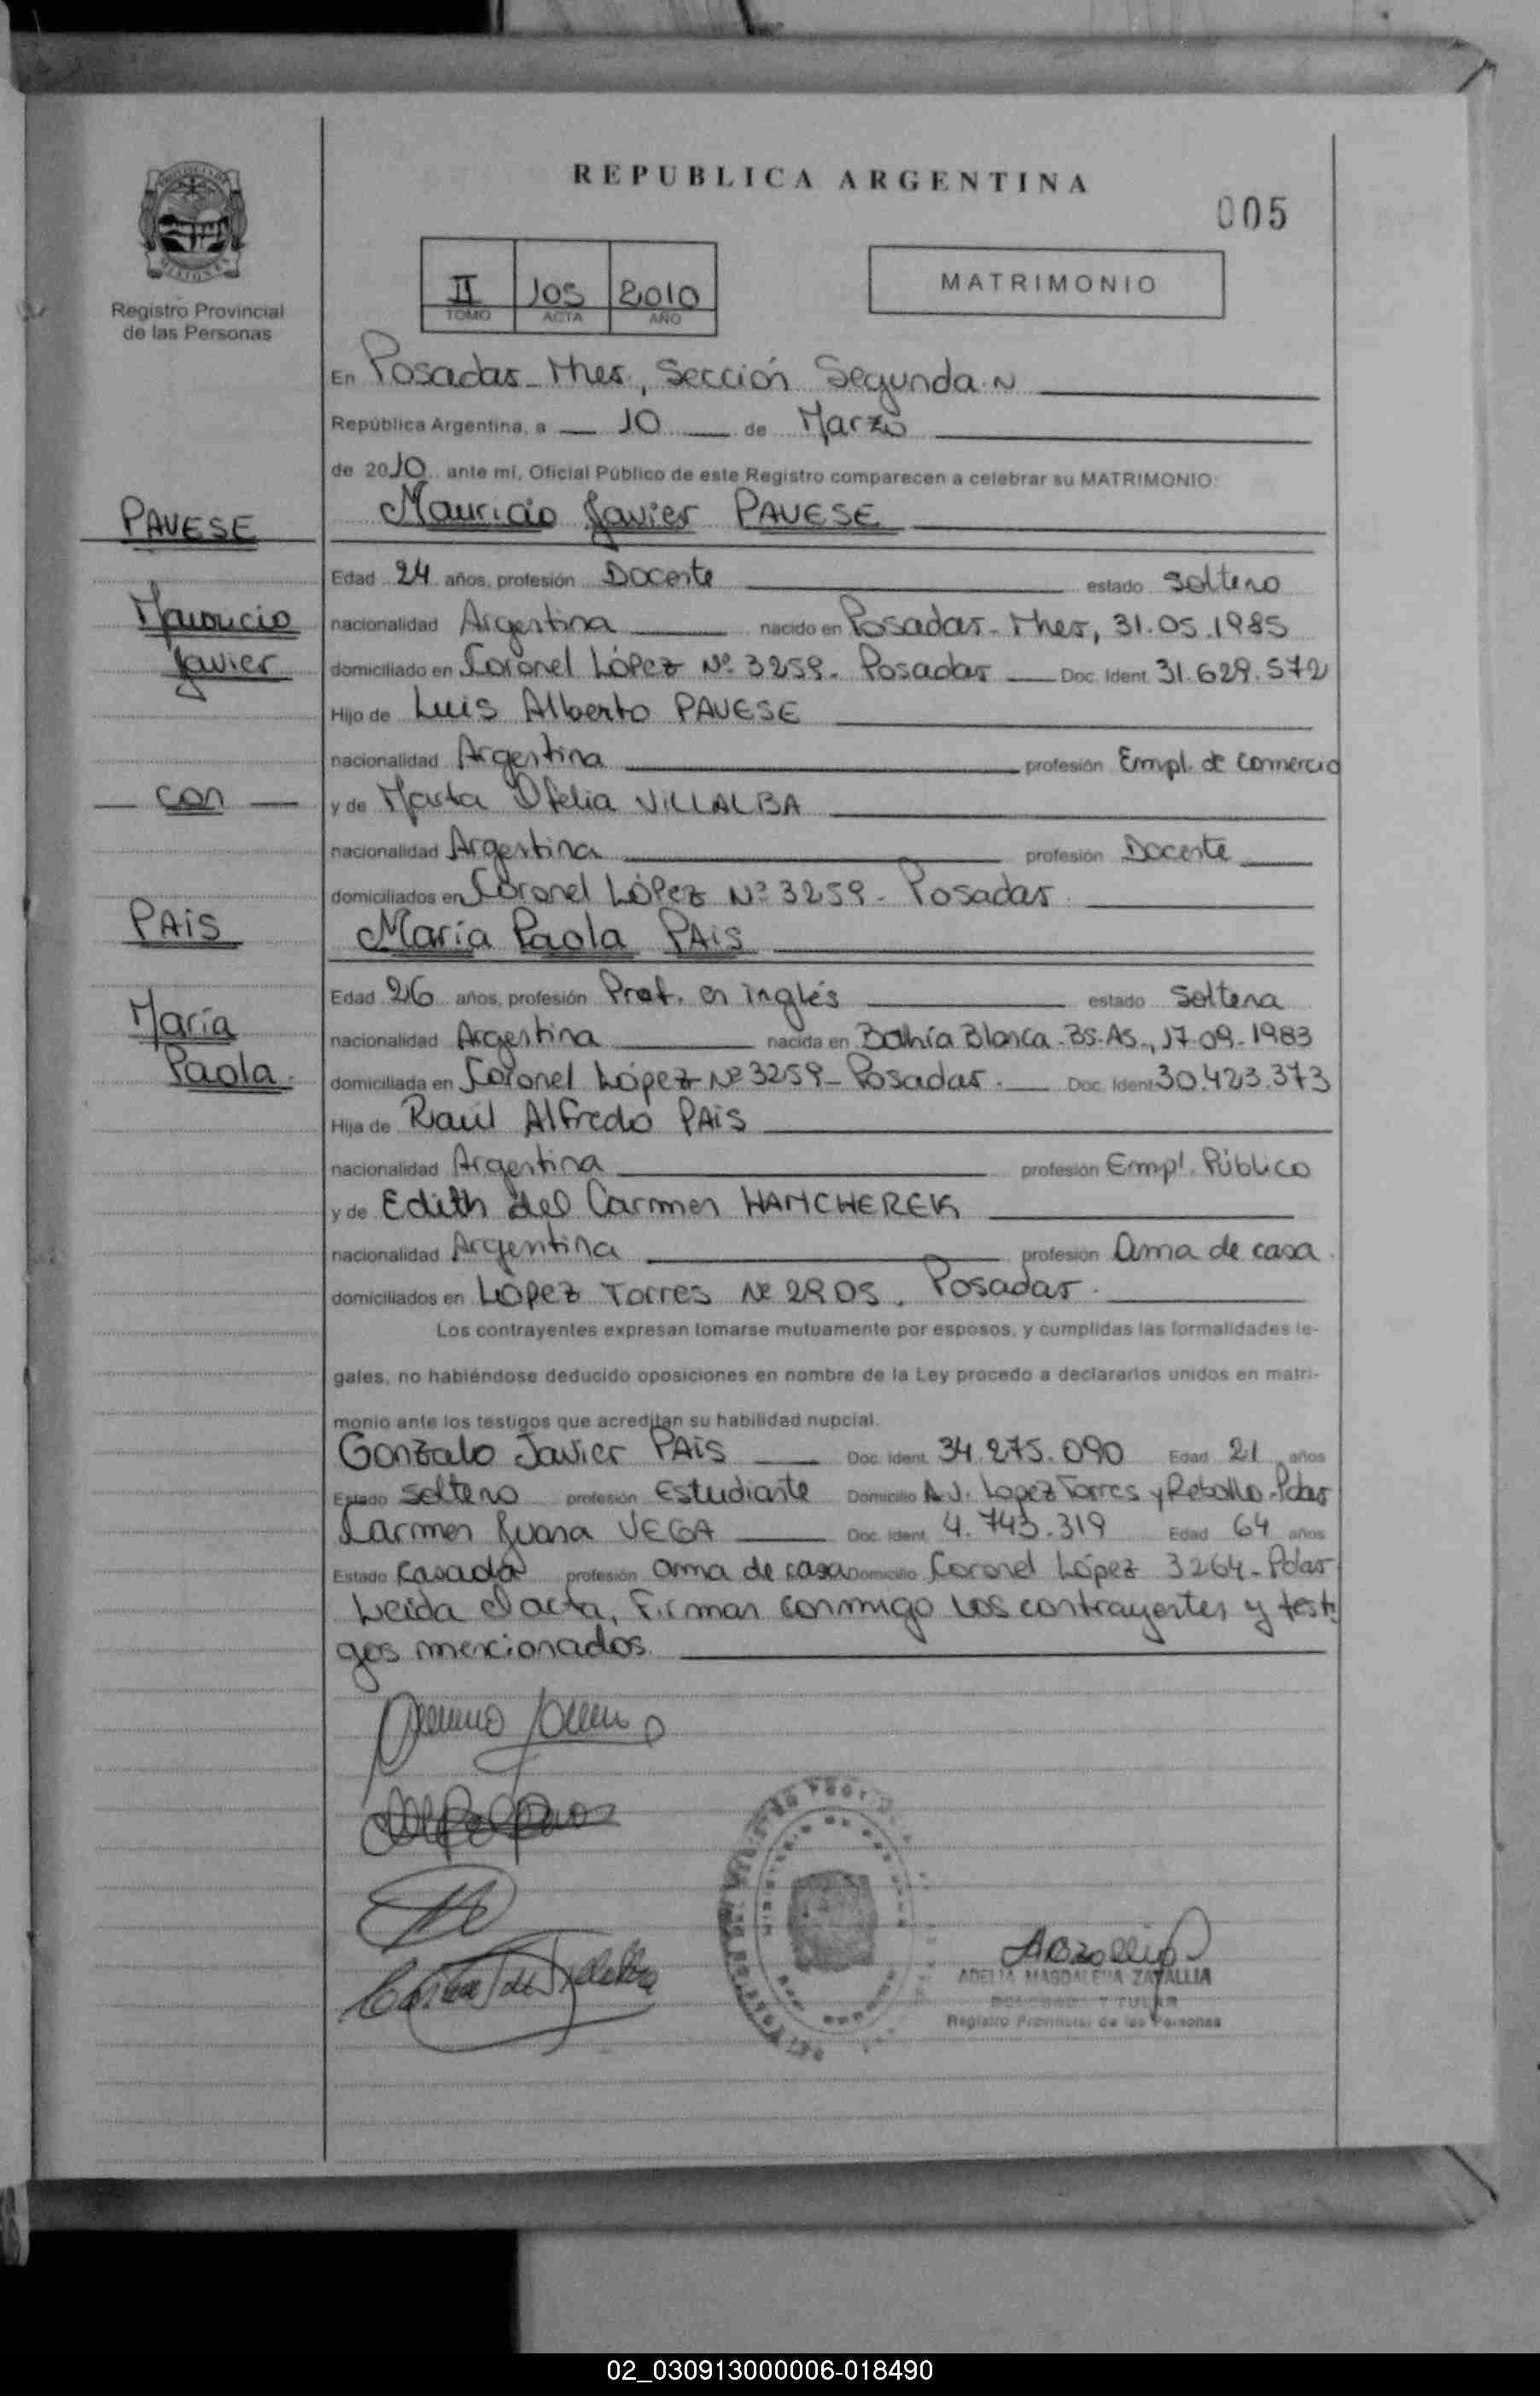 REPUBLICA ARGENTINA
005
MISIONES
Registro Provincial
de las Personas
II 105 2010
TOMO ACTA AÑO
MATRIMONIO
En Posadas - Mnes, Sección Segunda.
República Argentina, a 10 de Marzo
de 2010 ante mí, Oficial Público de este Registro comparecen a celebrar su MATRIMONIO:
Mauricio Javier PAVESE
PAVESE
Mauricio
Javier
con
PAIS
María
Paola
Edad 24 años, profesión Docente estado soltero
nacionalidad Argentina nacido en Posadas - Mnes, 31.05.1985
domiciliado en Coronel López Nº 3259. Posadas Doc. Ident. 31.629.572
Hijo de Luis Alberto PAVESE
nacionalidad Argentina profesión Empl. de comercio
y de Marta Ofelia VILLALBA
nacionalidad Argentina profesión Docente
domiciliados en Coronel López Nº 3259 - Posadas
María Paola PAIS
Edad 26 años, profesión Prof. en inglés estado soltera
nacionalidad Argentina nacida en Bahía Blanca - Bs. As., 17-09-1983
domiciliada en Coronel López Nº 3259 - Posadas. Doc. Ident. 30.423.373
Hija de Raúl Alfredo PAIS
nacionalidad Argentina profesión Empl. Público
y de Edith del Carmen HAMCHEREK
nacionalidad Argentina profesión ama de casa.
domiciliados en López Torres Nº 2905. Posadas.
Los contrayentes expresan tomarse mutuamente por esposos, y cumplidas las formalidades le-
gales, no habiéndose deducido oposiciones en nombre de la Ley procedo a declararlos unidos en matri-
monio ante los testigos que acreditan su habilidad nupcial.
Gonzalo Javier PAIS Doc. Ident. 34.275.090 Edad 21 años
Estado soltero profesión Estudiante Domicilio Av. Lopez Torres y Rebollo - Pdas
Carmen Juana VEGA Doc. Ident. 4.743.319 Edad 64 años
Estado casada profesión ama de casa Domicilio Coronel López 3264 - Pdas
Leida el acta, firman conmigo los contrayentes y testi
gos mencionados.
ADELIA MAGDALENA ZAVALLIA
Registro Provincial de las Personas
02_030913000006-018490